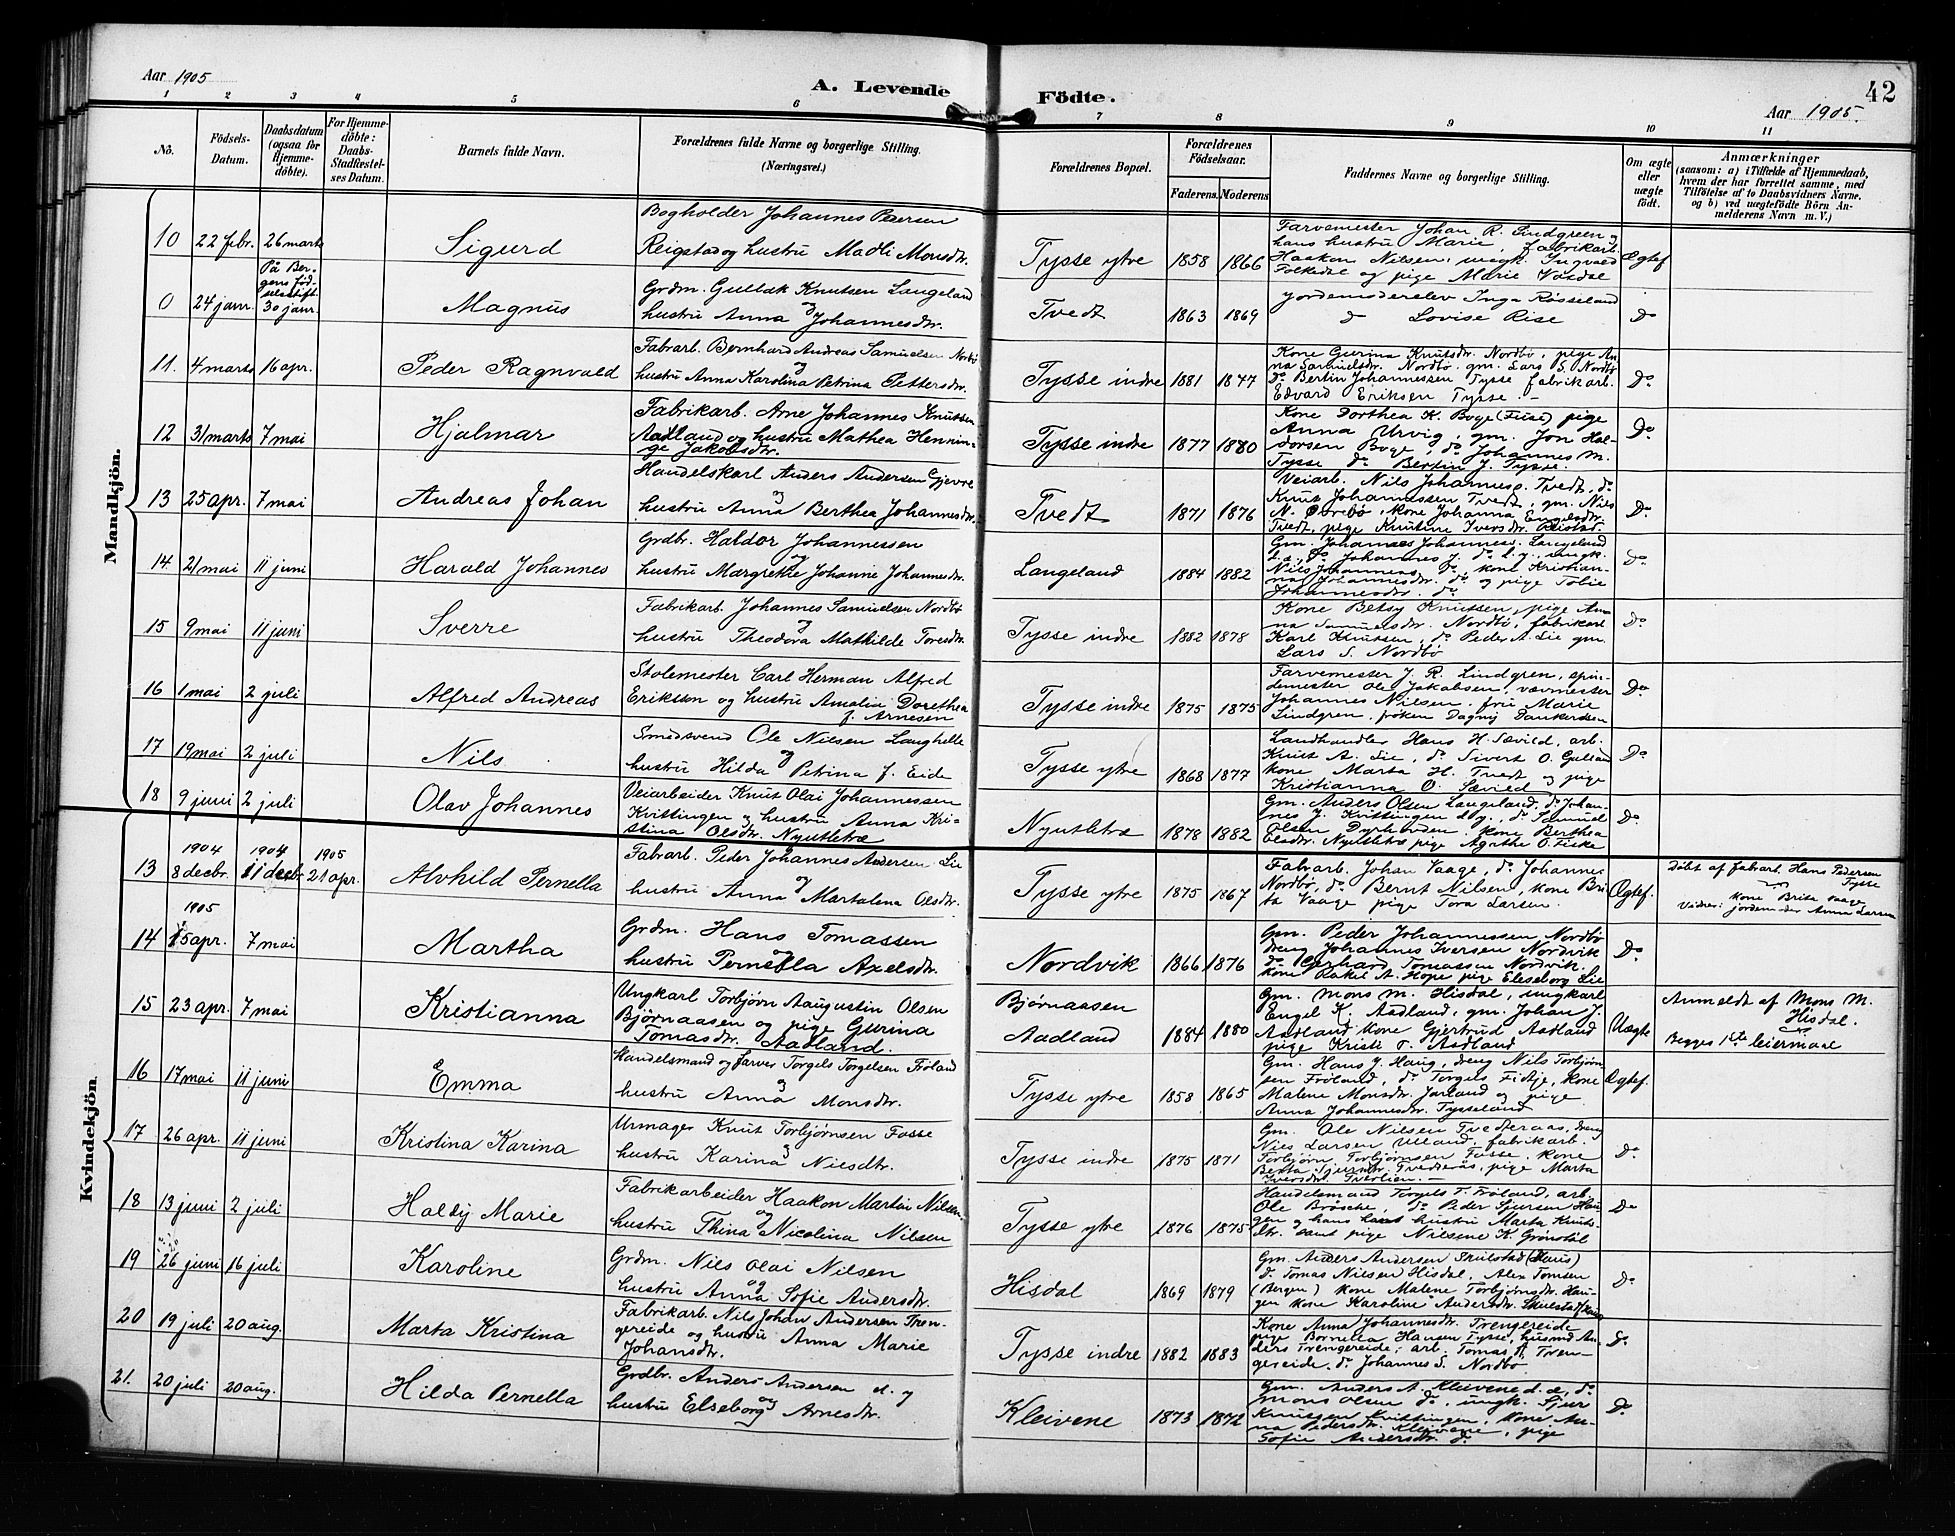 Aar 1905
A. Levende
Födte.
42
Aar 1905.
1 2 3 4 5 6 7 8 9 10 11
No.
Födsels-
Datum.
Daabsdatum
(ogsaa for
Hjemme-
döbte).
For Hjemme-
döbte:
Daabs-
Stadfæstel-
ses Datum.
Barnets fulde Navn.
Forældrenes fulde Navne og borgerlige Stilling.
(Næringsvei.)
Forældrenes Bopæl.
Forældrenes
Födselsaar.
Faderens. Moderens.
Faddernes Navne og borgerlige Stilling.
Om ægte
eller
uægte
födt.
Anmærkninger
(saasom: a) i Tilfælde af Hjemmedaab,
hvem der har forrettet samme, med
Tilföielse af to Daabsvidners Navne,
og b) ved uægtefödte Börn An-
melderens Navn m. V.)
Mandkjön.
10 22 febr. 26 marts
Sigurd
Bogholder Johannes Pedersen
Reigstad og hustru Madli Monsdtr.
Tysse ytre 1858 1866
Farvemester Johan R. Lindgreen og
hans hustru Marie, fabrikarb.
Haakon Nilsen, ungk. Ingvald
Folkedal og pige Marie Vasdal
Ægtef
0 24 janr.
På Ber-
gens fød-
selsstift.
30 janr.
Magnus
Grdm. Gullak Knutsen Langeland
og
hustru Anna Johannesdtr.
Tvedt 1863 1869
Jordemoderelev Inga Røsseland
do Lovise Rise
do
11. 4 marts 16 apr.
Peder Ragnvald
Fabrarb. Bernhard Andreas Samuelsen Norbø
og
hustru Anna Karolina Petrina Pettersdtr.
Tysse indre 1881 1877
Kone Gurina Knutsdr. Nordbø, pige An-
na Samuelsdr. Nordbø, gm. Lars S. Nordbø
do Bertin Johannessen Tysse fabrikarb.
Edvard Eriksen Tysse. –
Do
12 31 marts 7 mai
Hjalmar
Fabrikarb. Arne Johannes Knutsen
Aadland og hustru Mathea Hennin-
ge Jakobsdtr.
Tysse indre 1877 1880
Kone Dorthea K. Boge (Fuse) pige
Anna Urvig, gm. Jon Hal-
dorsen Boge, do Johannes M.
Tysse do Bertin J. Tysse.
Do
13 25 apr. 7 mai
Andreas Johan
Handelskarl Anders Andersen Gjevre
og
hustru Anna Berthea Johannesdtr.
Tvedt 1871 1876
Veiarb. Nils Johannesp. Tvedt, do
Knut Johannessen Tvedt, gm. Nils
N. Øvrebø, kone Johanna Engelsdtr.
Tvedt, pige Knutine Iversdr.
Do
14. 21 mai 11 juni
Harald Johannes
Grdbr. Haldor Johannessen
og
hustru Margrethe Johanne Johannesdtr.
Langeland 1884 1882
Gm. Johannes Johannes. Langeland
Johannes J. do ungk.
Nils Johannes. do kone Kristian-
na Johannesdtr. do og pige Tolie
Johannesdtr. do
Do
15 9 mai 11 juni
Sverre
Fabrikarb. Johannes Samuelsen Nordbø
og
hustru Theodora Mathilde Toresdtr.
Tysse indre 1882 1878
Kone Betsy Knutsen, pige An-
na Samuelsdr. Nordbø, fabrikarb
Karl Knutsen, do Peder A. Lie gm.
Lars S. Nordbø
Do
16 1 mai 2 juli
Alfred Andreas
Stolemester Carl Herman Alfred
Eriksson og hustru Amalia Dorethea
f. Arnesen
Tysse indre 1875 1875
Farvemester J. R. Lindgren, spin-
demester Ole Jakobsen, vævmester
Johannes Nilsen, fru Marie
Lindgren, frøken Dagny Dankertsen
Do
17 19 mai 2 juli
Nils
Smedsvend Ole Nilsen Langhelle
og
hustru Hilda Petrina f. Eide
Tysse ytre 1868 1877
Landhandler Hans H. Sævild, arb.
Knut A. Lie, do Sivert O. Gulland
kone Marta H. Tvedt og pige
Kristianna O. Sævild
Do
18 9 juni 2 juli
Olav Johannes
Veiarbeider Knut Olai Johannessen
Kvittingen og hustru Anna Kri-
stina Olsdtr. Nyutletræ
Nyutletræ 1878 1882
Gm. Anders Olsen Langeland, do Johan-
nes J. Kvittingen do Samuel
Olsen Dyrhovden, kone Berthea
Olsdtr. Nyutletræ pige Agathe O. Fiske
Do
Kvindekjön.
13
1904
8 decbr.
1904
11 decbr
1905
21 apr.
Alvhild Pernella
Fabrarb. Peder Johannes Andersen Lie
og
hustru Anna Martalena Olsdtr.
Tysse ytre 1875 1867
Fabrarb. Johan Vaage, do Johannes
Nordbø, do Bernt Nilsen, kone Bri-
ta Vaage pige Tora Larsen.
Ægtef.
Døbt af fabarb. Hans Pedersen
Tysse
Vidner: kone Brita Vaage
jordemoder Anna Larsen
14
1905
15 apr. 7 mai
Martha
Grdm. Hans Tomassen
og
hustru Pernella Axelsdtr.
Nordvik 1866 1876
Gm. Peder Johannessen Nordbø
dreng Johannes Iversen Nordvik
do Gerhard Tomassen Nordvik
kone Rakel A. Hope pige Elseborg Lie
Do
15 23 apr. 7 mai
Kristianna
Ungkarl Torbjørn Aaugustin Olsen
Bjørnaasen og pige Gurina
Tomasdtr. Aadland.
Bjørnaasen
Aadland 1884 1880
Gm. Mons M. Hisdal, ungkarl
Engel K. Aadland, gm. Johan J.
Aadland kone Gjertrud Aadland
pige Kristi T. Aadland
Uægte
Anmeldt af Mons M.
Hisdal.
Begges 1ste leiermaal
16 17 mai 11 juni
Emma
Handelsmand og farver Torgels Torgelsen Frøland
og
hustru Anna Monsdtr.
Tysse ytre 1858 1865
Gm. Hans J. Haug, dreng Nils Torbjørn-
sen Frøland, do Torgels Fidtje, kone
Malene Monsdtr. Jarland og pige
Anna Johannesdtr. Tysseland
Ægtef.
17 26 apr. 11 juni
Kristina Karina
Urmager Knut Torbjørnsen Fosse
og
hustru Karina Nilsdtr.
Tysse indre 1875 1871
Gm. Ole Nilsen Tvedteraas, dreng
Nils Larsen Ulland, fabrikarb.
Torbjørn Torbjørnsen Fosse, kone
Berta Sjursdtr. Tvedteraas, pige Marta
Iversdtr. Tverlien. –
Do
18 13 juni 2 juli
Haldy Marie
Fabrikarbeider Haakon Martin Nilsen
og
hustru Thina Nicolina Nilsen
Tysse ytre 1876 1875
Handelsmand Torgels T. Frøland, arb.
Ole Brøsche, do Peder Sjursen Hau-
gen og hans hustru Marta Knuts-
dtr. samt pige Nilsene K. Grønstøl
Do
19 26 juni 16 juli
Karoline
Grdm. Nils Olai Nilsen
og
hustru Anna Sofie Andersdtr.
Hisdal 1869 1879
Gm. Anders Andersen Skulstad (Haus)
do Tomas Nilsen Hisdal, Alex Tomsen
(Bergen) kone Malene Torbjørnsdr. Hau-
gen kone Karoline Andersdr. Skulstad (Haus)
Do
20 19 juli 20 aug.
Marta Kristina
Fabrikarb. Nils Johan Andersen Tren-
gereide og hustru Anna Marie
Johansdtr.
Tysse indre 1882 1883
Kone Anna Johannesdtr. Trengereide
pige Bornilla Hansen Tysse, husmd An-
ders Trengereide, arb. Tomas A. Tren-
gereide, do Johannes S. Nordbø
Do
21. 20 juli 20 aug.
Hilda Pernella
Grdbr. Anders Andersen d. y
og
hustru Elseborg Arnesdtr.
Kleivene 1873 1872
Gm. Anders A. Kleivene d. æ, do
Mons Olsen do, ungk. Sjur
Knutsen Kvittingen, kone An-
na Pedersdtr. Kleivane, pige
Sofie Andersdtr. do
Do